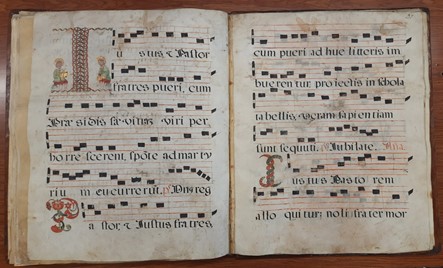 Iustus & Pastor
fratres pueri, cum
Præsidis sævitiam viri per
horrescerent, spõte ad marty
rium cucurrerũt. ℣. Dũs reg
Pastor, & Iustus fratres
cum pueri adhuc litteris im
buerentur, proiectis in schola
tabellis, veram sapientiam
sunt sequuti. Iubilate.
Iustus Pastorem
alloquitur; noli frater mor